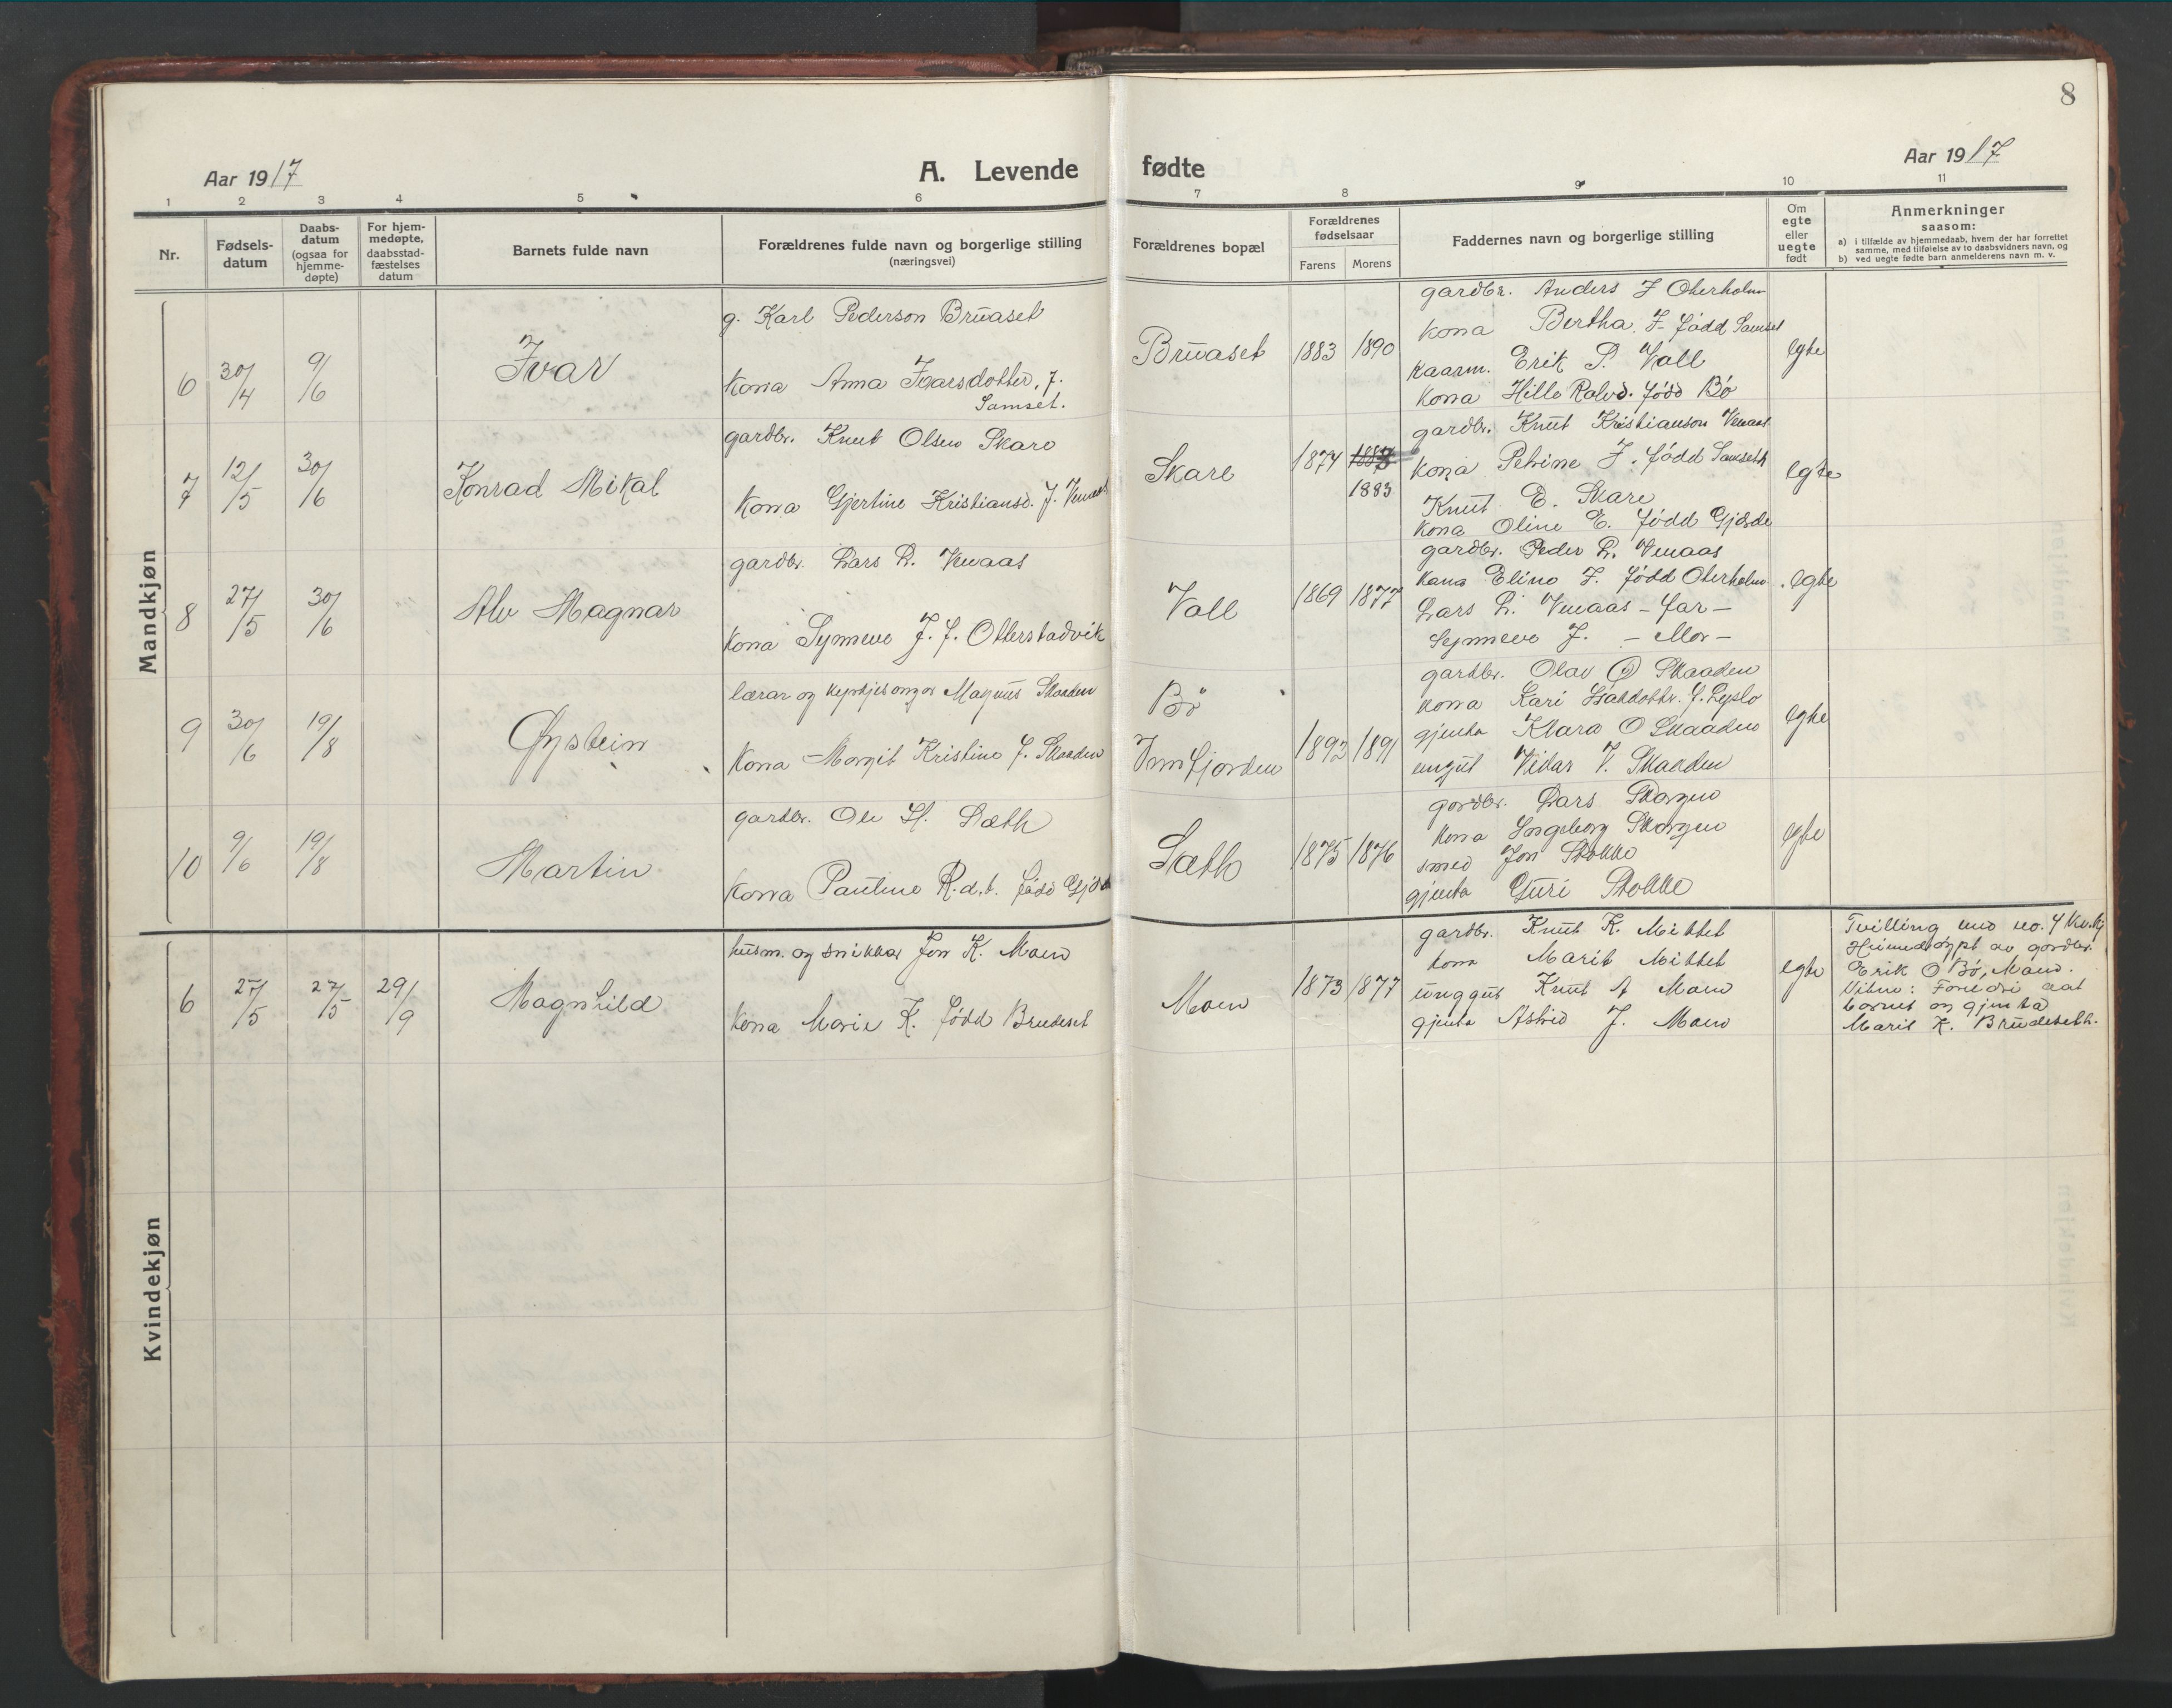 8
Aar 1917
A. Levende
fødte
Aar 1917
1 2 3 4 5 6 7 8 9 10 11
Nr.
Fødsels-
datum
Daabs-
datum
(ogsaa for
hjemme-
døpte)
For hjem-
medøpte,
daabsstad-
fæstelses
datum
Barnets fulde navn
Forældrenes fulde navn og borgerlige stilling
(næringsvei)
Forældrenes bopæl
Forældrenes
fødselsaar
Farens Morens
Faddernes navn og borgerlige stilling
Om
egte
eller
uegte
født
Anmerkninger
saasom:
a) i tilfælde av hjemmedaab, hvem der har forrettet
samme, med tilføielse av to daabsvidners navn, og
b) ved uegte fødte barn anmelderens navn m. v.
Mandkjøn
6 30/4 9/6 Ivar
g. Karl Pederson Brüaset
Kona Anna Ivarsdotter, f.
Samset.
Brüaset 1883 1890
gardbr. Anders J Oterholm
Kona Bertha J. född Samset
kaarm. Erik P. Voll
Kona Hille Rolvd. född Bö
egte
7 12/5 30/6 Konrad Mikal
gardbr. Knut Olsen Skare
Kona Gjertine Kristiansd. f. Venaas
Skare 1874 1883
gardbr. Knüt Kristianson Venaas
Kona Petrine J. född Samseth
Knüt E. Skare
Kona Oline E. född Gjerde
egte
8 27/5 30/6 Alv Magnar
gardbr. Lars L. Venaas
Kona Synneve J. f. Otterstadvik
Voll 1869 1877
gardbr. Peder L. Venaas
Kona Eline J. född Oterholm
Lars L. Venaas - far -
Synneve J. - Mor -
egte
9 30/6 19/8 Øystein
lærar og kyrkjesongar Magnüs Skaaden
Kona Margit Kristine f. Skaaden
Bö
Innfjorden 1892 1891
gardbr. Olav O Skaaden
Kona Kari f.
gjenta Klara O Skaaden
ungüt Vidar V. Skaaden
egte
10 9/6 19/8 Martin
gardbr. Ole H. Sæth
Kona Pauline R.d.t. född
Sæth 1875 1876
gardbr. Lars Skorgen
Kona Ingeborg Skorgen
smed Jon Stokke
gjenta Güri Stokke
egte
Kvindekjøn
6 27/5 27/5 29/9 Magnhild
husm. og snikkar Jon K. Moen
Kona Marie K. född Brudeset
Moen 1873 1877
gardbr. Knüt K. Mittet
Kona Marit Mittet
unggüt Knüt A Moen
gjenta Astrid J. Moen
egte
Tvilling med no. 4 Kv.kj
Heimedøypt av gardbr.
Erik O Bö, Moen.
Vitne: Foreldri aat
barnet og gjenta
Marit K. Brüdeseth.